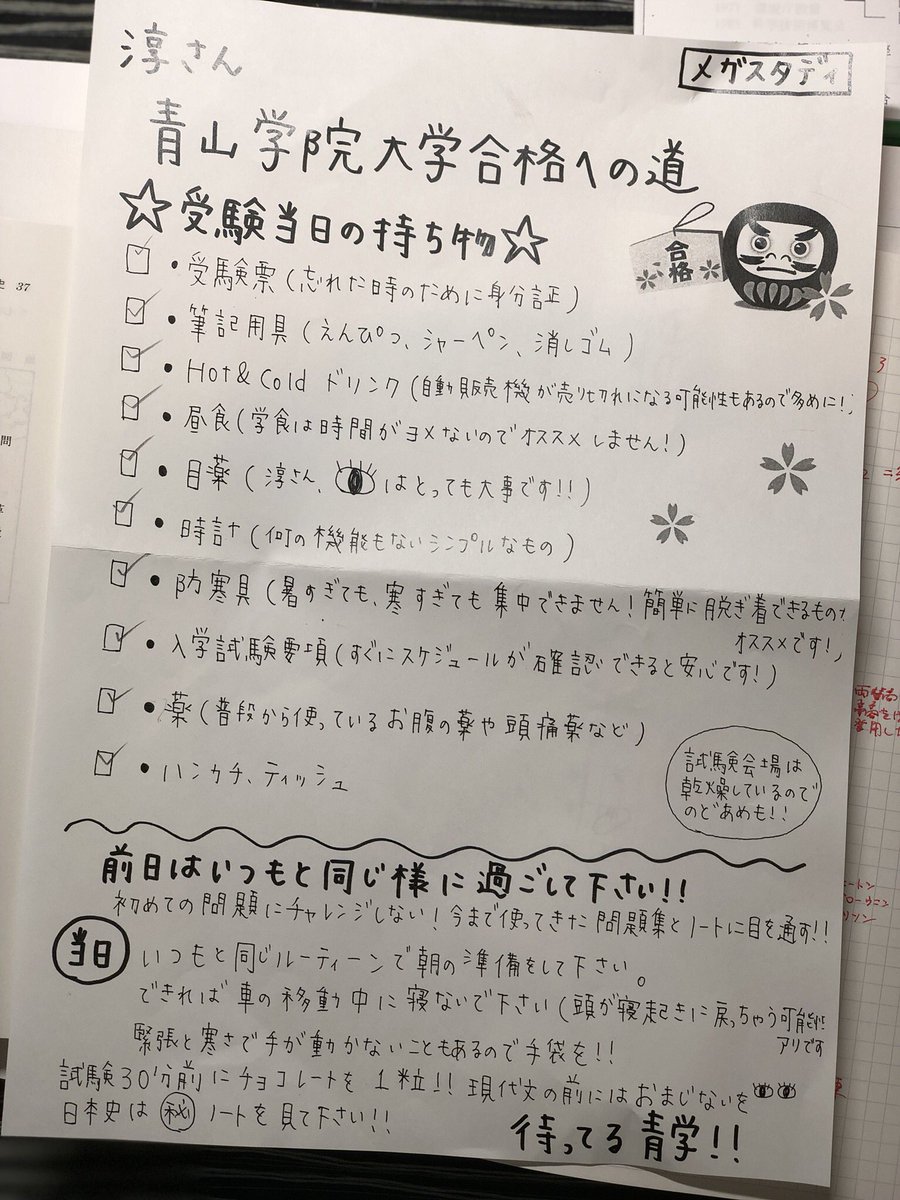 淳さん
メガスタディ
青山学院大学合格への道
☆受験当日の持ち物☆
合格
・受験票(忘れた時のために身分証)
・筆記用具(えんぴつ、シャーペン、消しゴム)
・Hot&Cold ドリンク(自動販売機が売り切れになる可能性もあるので多めに!)
・昼食(学食は時間がヨメないのでオススメしません!)
・目薬(淳さん、はとっても大事です!!)
・時計(何の機能もないシンプルなもの)
・防寒具(暑すぎても、寒すぎても集中できません!簡単に脱ぎ着できるものが
オススメです!)
・入学試験要項(すぐにスケジュールが確認できると安心です!)
・薬(普段から使っているお腹の薬や頭痛薬など)
・ハンカチ、ティッシュ
試験会場は
乾燥しているので
のどあめも!!
前日はいつもと同じ様に過ごして下さい!!
初めての問題にチャレンジしない!今まで使ってきた問題集とノートに目を通す!!
当日
いつもと同じルーティーンで朝の準備をして下さい。
できれば車の移動中に寝ないで下さい(頭が寝起きに戻っちゃう可能性
アリです
緊張と寒さで手が動かないこともあるので手袋を!!
試験30分前にチョコレートを1粒!!現代文の前にはおまじないを
日本史は㊙ノートを見て下さい!!
待ってる青学!!
37
問